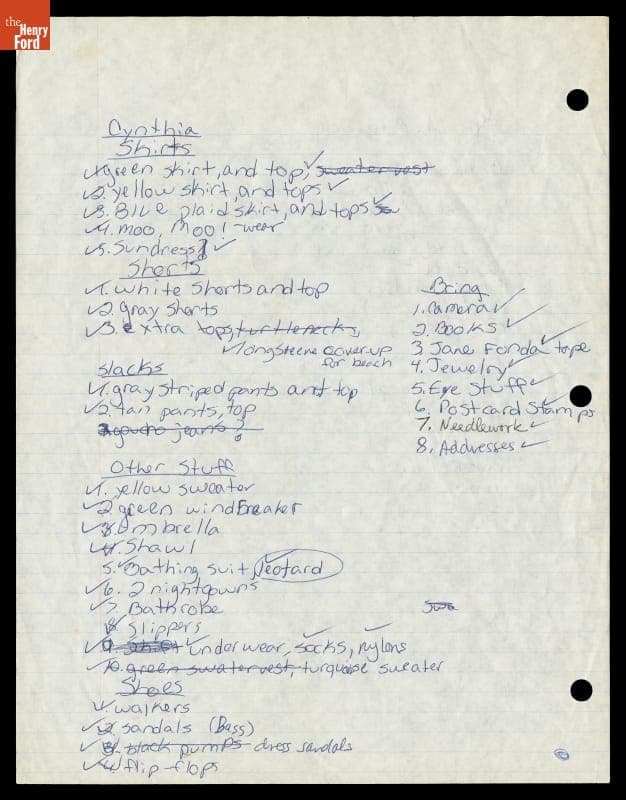 the
Henry
Ford
Cynthia
Skirts
1. green skirt, and top, sweater vest
2. yellow skirt, and tops
3. Blue plaid skirt, and tops
4. moo, moo! - wear
5. Sundress
Shorts
1. white shorts and top
2. gray shorts
3. extra tops, turtlenecks,
longsleeve cover-up
for beach
slacks
1. gray striped pants and top
2. tan pants, top
3. goucho jeans?
Other Stuff
1. yellow sweater
2. green windBreaker
3. Umbrella
4. Shawl
5. Bathing suit, leotard
6. 2 nightgowns
7. Bathrobe
8. Slippers
9. underwear, socks, nylons
10. green swater vest, turquoise sweater
Shoes
1. walkers
2. sandals (Bass)
3. black pumps dress sandals
4. flip-flops
Bring
1. camera
2. Books
3. Jane Fonda tape
4. Jewelry
5. Eye Stuff
6. Postcard Stamps
7. Needlework
8. Addresses